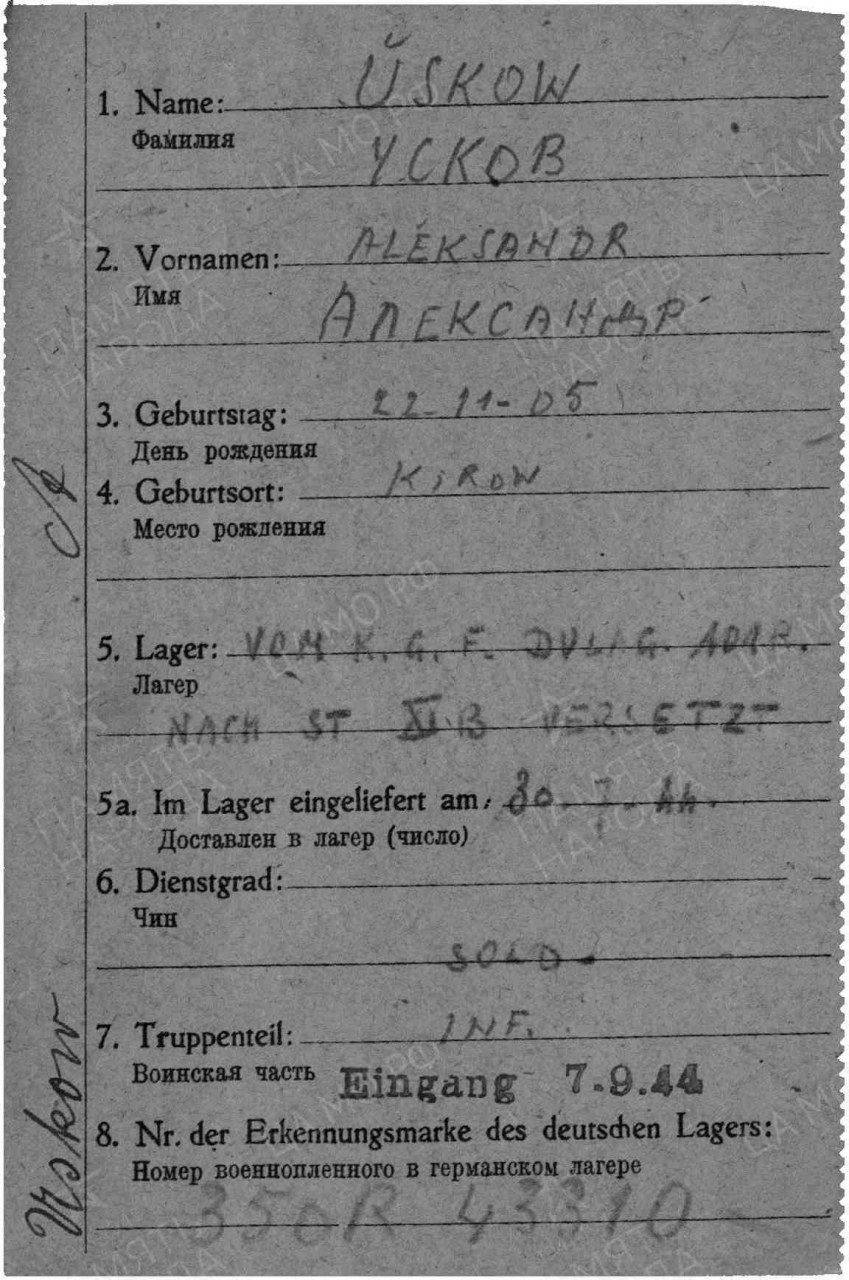 1. Name: ŬSKOW
Фамилия УСКОВ
2. Vornamen: ALEKSANDR
Имя
АЛЕКСАНДР
3. Geburtstag: 22-11-05
День рождения
4. Geburtsort: KIROW
Место рождения
5. Lager: VOM K. G. F. DULAG. R.
Лагер
NACH ST XI B VERSETZT
5a. Im Lager eingeliefert am: 44.
Доставлен в лагер (число)
6. Dienstgrad:
Чин
SOLD.
7. Truppenteil: INF.
Воинская часть Eingang 7.9.44
8. Nr. der Erkennungsmarke des deutschen Lagers:
Номер военнопленного в германском лагере
350R 43310
Uskow
ЦА МО РФ
ПАМЯТЬ
НАРОДА